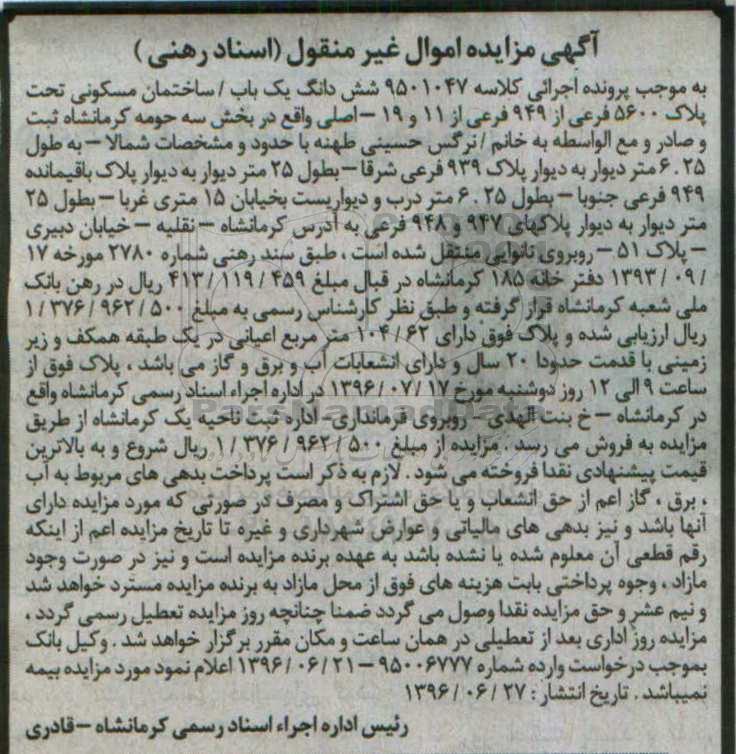 آگهی مزایده اموال غیر منقول (اسناد رهنی)
به موجب پرونده اجرائی کلاسه ۹۵۰۱۰۴۷ شش دانگ یک باب / ساختمان مسکونی تحت
پلاک ۵۶۰۰ فرعی از ۹۴۹ فرعی از ۱۱ و ۱۹ – اصلی واقع در بخش سه حومه کرمانشاه ثبت
و صادر و مع الواسطه به خانم / نرگس حسینی طهنه با حدود و مشخصات شمالا – به طول
۶.۲۵ متر دیوار به دیوار پلاک ۹۳۹ فرعی شرقا – بطول ۲۵ متر دیوار به دیوار پلاک باقیمانده
۹۴۹ فرعی جنوبا – بطول ۶.۲۵ متر درب و دیواریست بخیابان ۱۵ متری غربا – بطول ۲۵
متر دیوار به دیوار پلاکهای ۹۴۷ و ۹۴۸ فرعی به آدرس کرمانشاه – نقلیه – خیابان دبیری
– پلاک ۵۱ – روبروی نانوایی منتقل شده است ، طبق سند رهنی شماره ۲۷۸۰ مورخه ۱۷
/ ۰۹ / ۱۳۹۳ دفتر خانه ۱۸۵ کرمانشاه در قبال مبلغ ۴۱۳/۱۱۹/۴۵۹ ریال در رهن بانک
ملی شعبه کرمانشاه قرار گرفته و طبق نظر کارشناس رسمی به مبلغ ۱/۳۷۶/۹۶۲/۵۰۰
ریال ارزیابی شده و پلاک فوق دارای ۱۰۴/۶۲ متر مربع اعیانی در یک طبقه همکف و زیر
زمینی با قدمت حدودا ۲۰ سال و دارای انشعابات آب و برق و گاز می باشد ، پلاک فوق از
ساعت ۹ الی ۱۲ روز دوشنبه مورخ ۱۳۹۶/۰۷/۱۷ در اداره اجراء اسناد رسمی کرمانشاه واقع
در کرمانشاه – خ بنت الهدی – روبروی فرمانداری – اداره ثبت ناحیه یک کرمانشاه از طریق
مزایده به فروش می رسد . مزایده از مبلغ ۱/۳۷۶/۹۶۲/۵۰۰ ریال شروع و به بالاترین
قیمت پیشنهادی نقدا فروخته می شود . لازم به ذکر است پرداخت بدهی های مربوط به آب
، برق ، گاز اعم از حق انشعاب و یا حق اشتراک و مصرف در صورتی که مورد مزایده دارای
آنها باشد و نیز بدهی های مالیاتی و عوارض شهرداری و غیره تا تاریخ مزایده اعم از اینکه
رقم قطعی آن معلوم شده یا نشده باشد به عهده برنده مزایده است و نیز در صورت وجود
مازاد ، وجوه پرداختی بابت هزینه های فوق از محل مازاد به برنده مزایده مسترد خواهد شد
و نیم عشر و حق مزایده نقدا وصول می گردد ضمنا چنانچه روز مزایده تعطیل رسمی گردد ،
مزایده روز اداری بعد از تعطیلی در همان ساعت و مکان مقرر برگزار خواهد شد . وکیل بانک
بموجب درخواست وارده شماره ۹۵۰۰۶۷۷۷ – ۱۳۹۶/۰۶/۲۱ اعلام نمود مورد مزایده بیمه
نمیباشد . تاریخ انتشار : ۱۳۹۶/۰۶/۲۷
رئیس اداره اجراء اسناد رسمی کرمانشاه – قادری
ParsNamadData